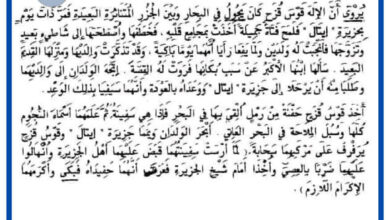 يُرْوَى أَنَّ الإِلَهَ قَوْسَ قُزَحٍ كَانَ يَجُولُ فِي البِحَارِ وَبَيْنَ الجُزُرِ المُتَنَاثِرَةِ البَعِيدَةِ فَمَرَّ ذَاتَ يَوْمٍ
بِجَزِيرَةِ " إيتال " فَلَمَحَ فَتَاةً جَمِيلَةً أَخَذَتْ بِمَجَامِعِ قَلْبِهِ . فَخَطَفَهَا وَاصْطَحَبَهَا إِلَى شَاطِئٍ بَعِيدٍ
وَتَزَوَّجَهَا فَأَنْجَبَتْ لَهُ وَلَدَيْنِ وَلَمَّا رَآهَا ابْنَاهَا يَوْمًا بَاكِيَةً . وَقَدْ تَذَكَّرَتْ وَالِدَيْهَا وَمَنْزِلَهَا القَدِيمَ
البَعِيدَ . سَأَلَهَا ابْنُهَا الأَكْبَرُ عَنْ سَبَبِ بُكَائِهَا فَرَوَتْ لَهُ القِصَّةَ . اِتَّجَهَ الوَلَدَانِ إِلَى وَالِدَيْهِمَا
وَطَلَبَا مِنْهُ أَنْ يَرْحَلَا إِلَى جَزِيرَةِ " إيتال " وَوَعَدَاهُ بِالعَوْدَةِ وَأَنَّهُمَا سَيَفِيَا بِذَلِكَ الوَعْدِ.
أَخَذَ قَوْسُ قُزَحٍ حَفْنَةً مِنْ رَمْلٍ أَلْقَى بِهَا فِي البَحْرِ فَإِذَا هِيَ سَفِينَةٌ ثُمَّ عَلَّمَهُمَا أَسْمَاءَ النُّجُومِ
كُلَّهَا وَسُبُلَ المِلَاحَةِ فِي البَحْرِ العَاتِي . أَبْحَرَ الوَلَدَانِ وَيَمَّمَا جَزِيرَةَ " إيتال " وَقَوْسُ قُزَحٍ
يُرَفْرِفُ عَلَى مَرْكَبِهِمَا سَحَابَةً. ( لَمَّا أَرْسَتْ سَفِينَتُهُمَا قَبَضَ عَلَيْهِمَا أَهْلُ الجَزِيرَةِ وَانْهَالُوا
عَلَيْهِمَا ضَرْبًا بِالعِصِيِّ وَأُخِذَا أَمَامَ شَيْخِ الجَزِيرَةِ فَعَرَفَ أَنَّهُمَا حَفِيدَاهُ فَبَكَى وَأَكْرَمَهُمَا
الإِكْرَامَ اللَّازِمَ ) .